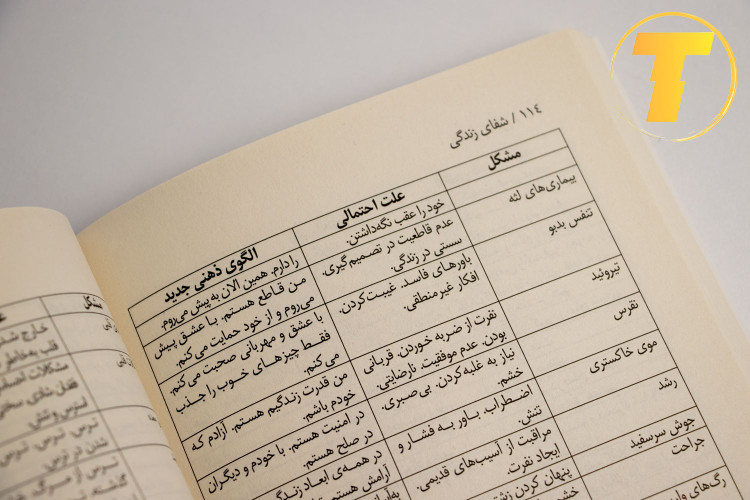 T
١١٤ / شفای زندگی
مشکل
علت احتمالی
الگوی ذهنی جدید
خود را عقب نگه‌داشتن.
را دارم. همین الان به پیش می‌روم.
بیماری‌های لثه
عدم قاطعیت در تصمیم‌گیری.
سستی در زندگی.
من قاطع هستم. با عشق پیش
می‌روم و از خود حمایت می‌کنم.
تنفس بدبو
باورهای فاسد. غیبت‌کردن.
افکار غیرمنطقی.
با عشق و مهربانی صحبت می‌کنم.
فقط چیزهای خوب را جذب
می‌کنم.
تیروئید
نفرت از ضربه خوردن. قربانی
بودن. عدم موفقیت. نارضایتی.
من قدرت زندگیم هستم. آزادم که
خودم باشم.
نقرس
نیاز به غلبه‌کردن. بی‌صبری.
خشم.
در امنیت هستم. با خودم و دیگران
در صلح هستم.
موی خاکستری
اضطراب. باور به فشار و
تنش.
در همه‌ی ابعاد زندگی
آرامش هستم
رشد
مراقبت از آسیب‌های قدیمی.
ایجاد نفرت.
جوش سرسفید
پنهان کردن زشتی
جراحت
خشم
رگ‌های
مشکل